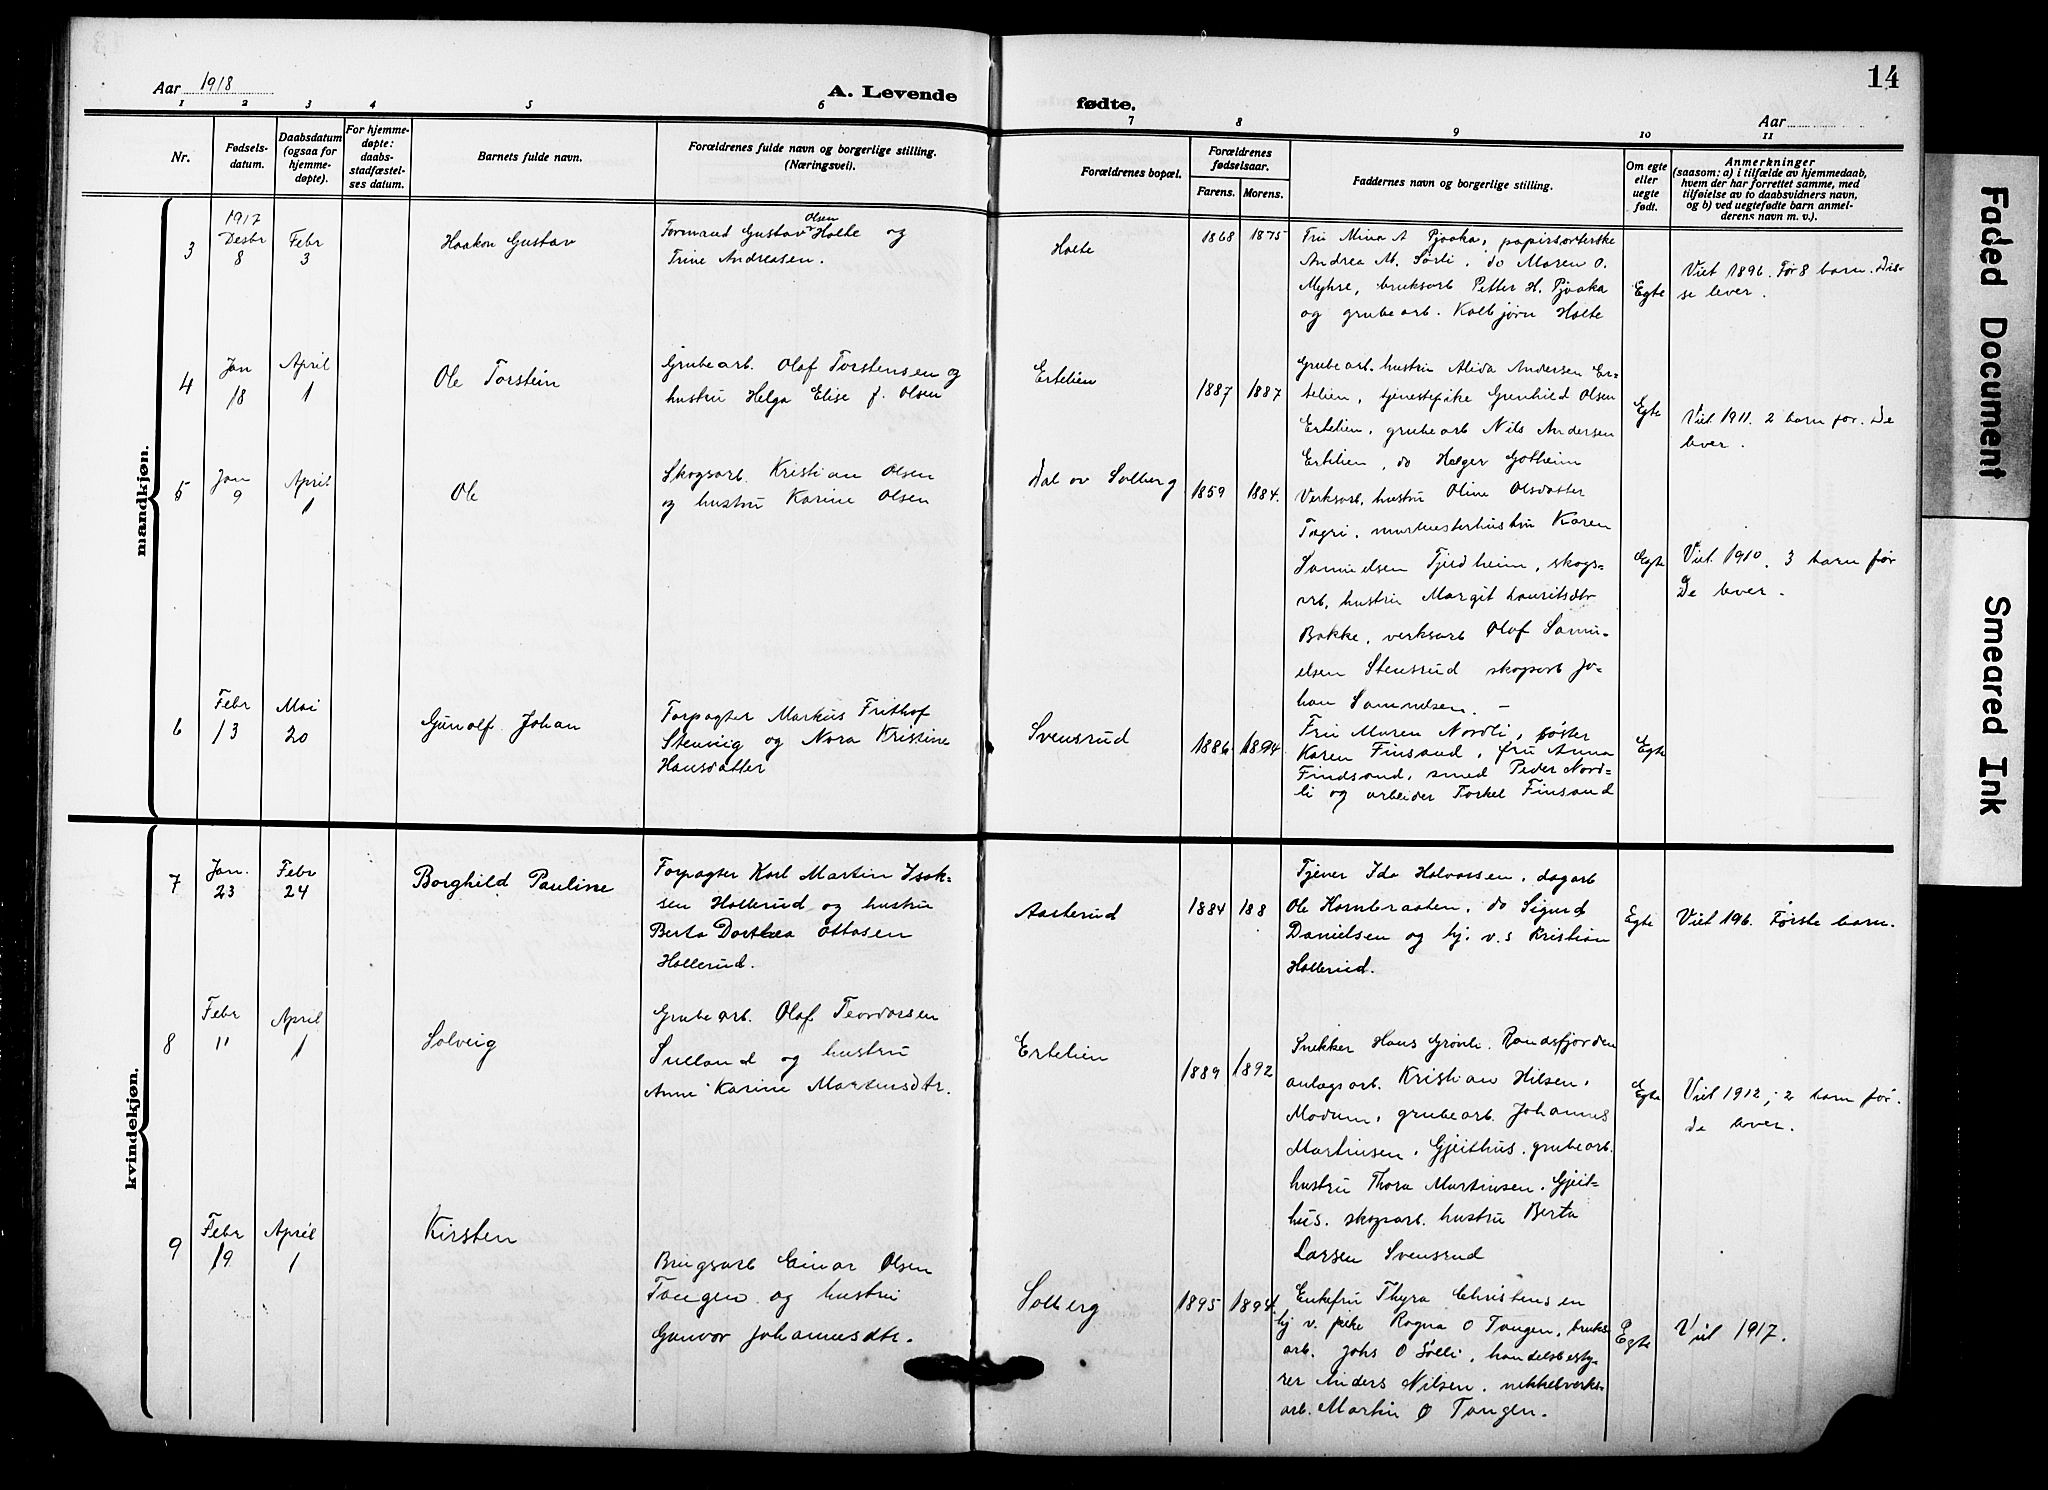 14
Aar 1918
A. Levende
fødte.
Aar
1 2 3 4 5 6 7 8 9 10 11
Nr.
Fødsels-
datum.
Daabsdatum
(ogsaa for
hjemme-
døpte).
For hjemme-
døpte:
daabs-
stadfæstel-
ses datum.
Barnets fulde navn.
Forældrenes fulde navn og borgerlige stilling.
(Næringsvei).
Forældrenes bopæl.
Forældrenes
fødselsaar.
Farens. Morens.
Faddernes navn og borgerlige stilling.
Om egte
eller
uegte
født.
Anmerkninger
(saasom: a) i tilfælde av hjemmedaab,
hvem der har forrettet samme, med
tilføielse av to daabsvidners navn,
og b) ved uegtefødte barn anmel-
derens navn m. v.).
mandkjøn.
3
1917
Desbr
8
Febr
3
Haakon Gustav
Olsen
Formand Gustav Holte og
Trine Andreasen.
Holte
1868 1875
Fru Mina A Pjaaka, papirsorterske
Andrea M. Sørli, do Maren O.
Myhre, bruksarb Petter H. Pjaaka
og grubearb. Kolbjørn Holte
Egte
Viet 1896. Før 8 barn. Dis-
se lever.
4
Jan
18
April
1
Ole Torstein
Grubearb. Olaf Torstensen og
hustru Helga Elise f. Olsen
Ertelien
1887 1887
Grubearb. hustru Alida Andersen Er-
telien, tjenestepike Grenhild Olsen
Ertelien, grubearb Nils Andersen
Ertelien, do Helger Gotheim
Egte
Viet 1911. 2 barn før. De
lever.
5
Jan
9
April
1
Ole
Skogsarb. Kristian Olsen
og hustru Karine Olsen
Dal av Solberg
1859 1884.
Verksarb. hustru Oline Olsdatter
Tagri, murmesterhustru Karen
Samuelsen Tjerdheim, skogs-
arb. hustru Margit Lauritsdtr
Bakke, verksarb Olaf Samu-
elsen Stensrud skogsarb Jo-
han Samuelsen. –
Egte
Viet 1910. 3 barn før
De lever.
6
Febr
13
Mai
20
Gunolf Johan
Forpagter Markus Frithof
Stenvig og Nora Kristine
Hansdatter
Svensrud
1886 1894
Fru Maren Nordli, søster
Karen Finsand, fru Anna
Findsand, smed Peder Nord-
li og arbeider Torkel Finsand
Egte
kvindekjøn.
7
Jan.
23
Febr
24
Borghild Pauline
Forpagter Karl Martin Isak-
sen Hollerud og hustru
Berta Dorthea Ottosen
Hollerud.
Aasterud
1884 188
Tjener Ida Halvorsen, dagarb
Ole Kornbraaten, do Sigurd
Danielsen og hj. v.s Kristian
Hollerud.
Egte
Viet 196. Første barn.
8
Febr
11
April
1
Solveig
Grubearb. Olaf Teordorsen
Sulland og hustru
Anne Karine Martinsdtr.
Ertelien
1889 1892
Snekker Hans Grønli. Randsfjorden
anlagsarb. Kristian Hilsen,
Modum, grubearb. Johannes
Martinsen, Gjeithus, grubearb.
hustru Thora Martinsen. Gjeit-
hus. skogsarb. hustru Berta
Larsen Svensrud
Egte
Viet 1912; 2 barn før.
De lever.
9
Febr
19
April
1
Kirsten
Brugsarb Einar Olsen
Tangen og hustru
Gunvor Johannesdtr.
Solberg
1895 1894.
Enkefru Thyra Christensen
hj v. pike Ragna O Tangen, bruks
arb. Johs O Sølli, handelsbesty-
rer Anders Nilsen. nikkelverks-
arb. Martin O Tangen.
Egte
Viet 1917.
Faded Document
Smeared Ink